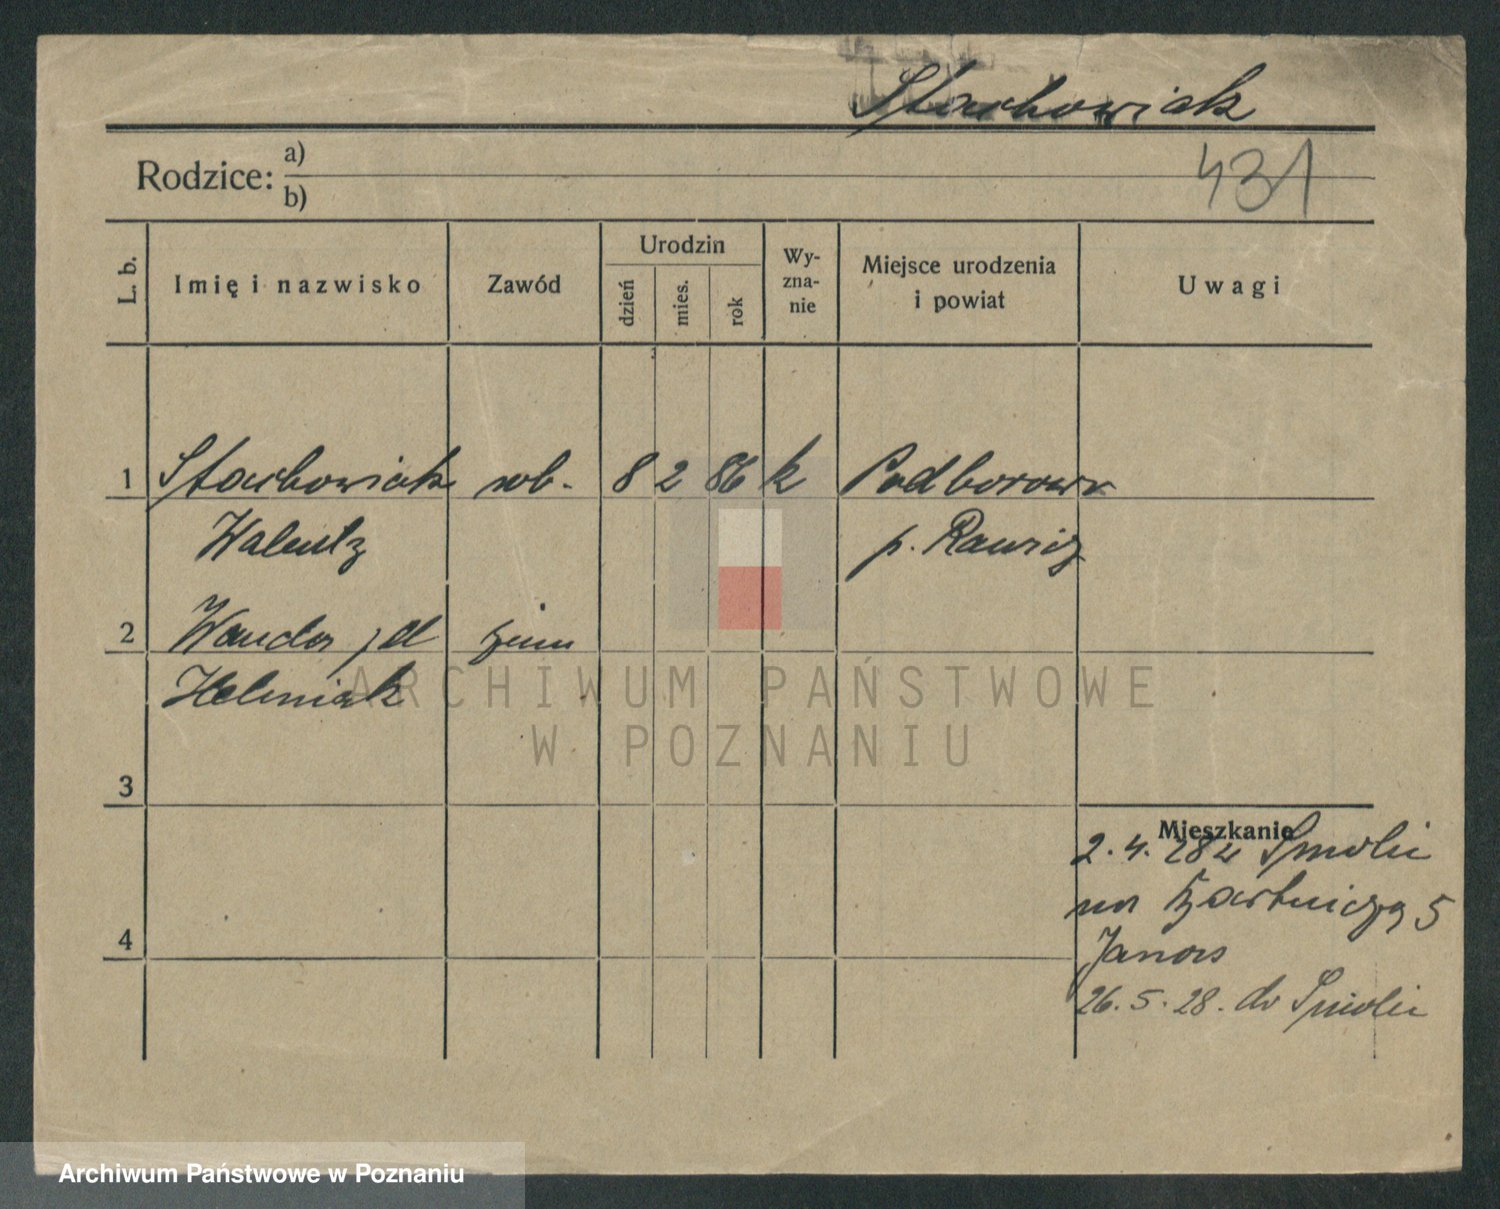 Stachowiak
Rodzice: a)
b)
431
L. b.
Imię i nazwisko
Zawód
Urodzin
dzień
mies.
rok
Wy-
zna-
nie
Miejsce urodzenia
i powiat
Uwagi
1 Stachowiak rob. 8 2 86 k Podborowo
Walenty p. Rawicz
2 Wanda żona
Heleniak
3
Mieszkanie
2.4.28 z Smolic
na
5
4
Janas
26.5.28. do Smolic
ARCHIWUM PAŃSTWOWE
W POZNANIU
Archiwum Państwowe w Poznaniu